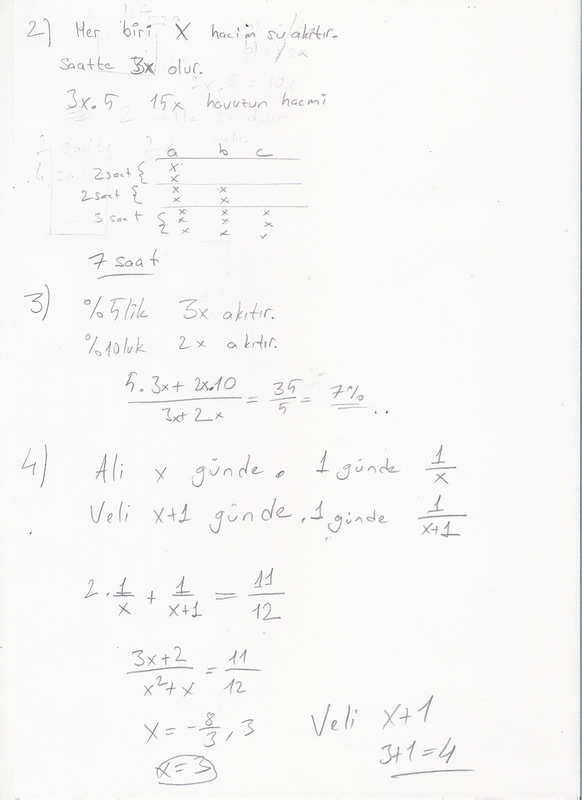 2) Her biri X hacim su akıtır.
Saatte 3x olur.
3x.5 15x havuzun hacmi
a b c
2 saat { x
x
2 saat { x x
x x
3 saat { x x x
x x x
x x x
7 saat
3) %5lik 3x akıtır.
%10luk 2x akıtır.
5.3x+2x.10 / 3x+2x = 35/5 = 7%
4) Ali x günde. 1 günde 1/x
Veli x+1 günde. 1 günde 1/x+1
2.1/x + 1/x+1 = 11/12
3x+2 / x²+x = 11/12
x = -8/3, 3
x=3
Veli x+1
3+1=4